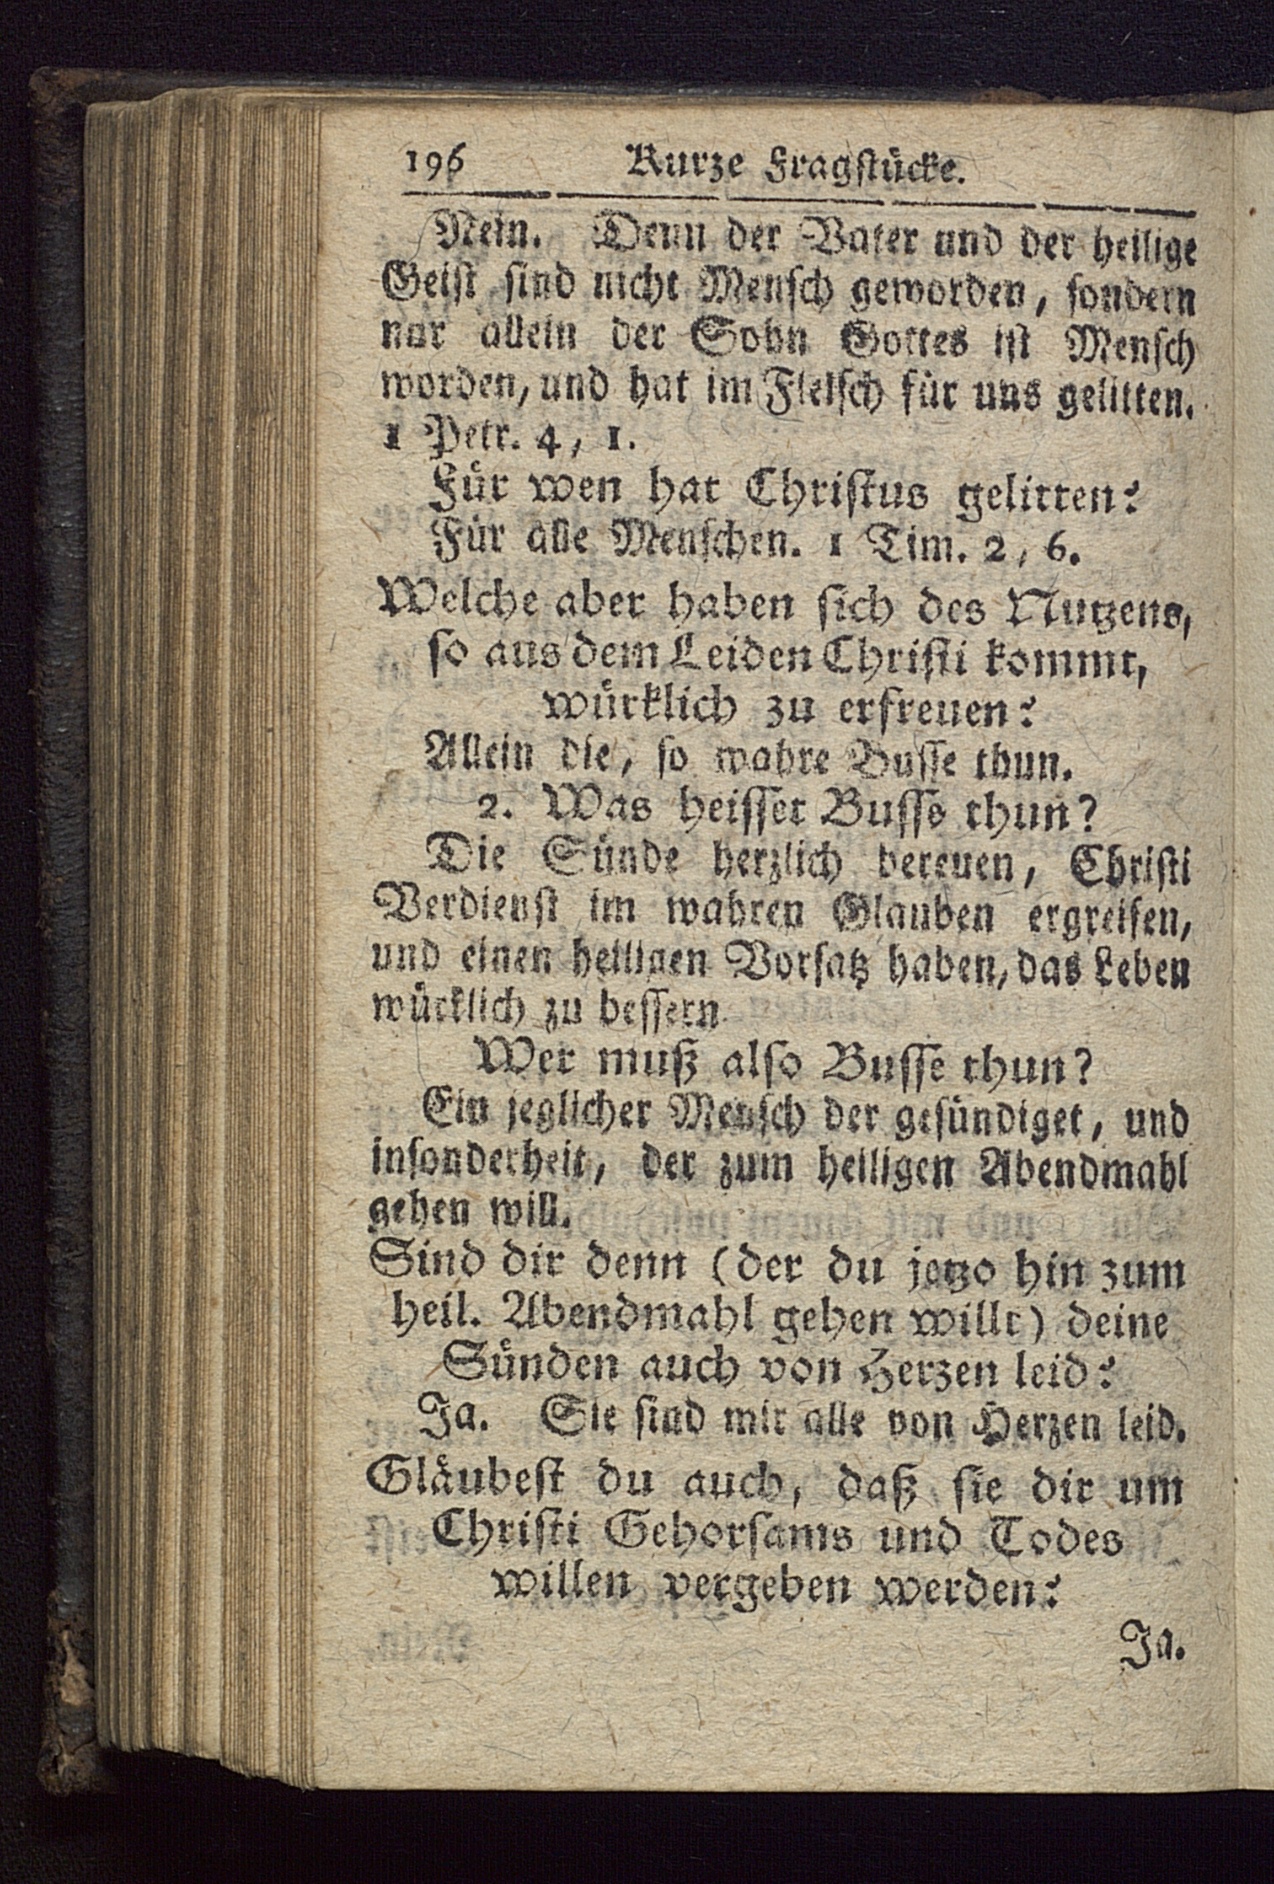 196 Kurze Fragstücke.
Nein. Denn der Vater und der heilige
Geist sind nicht Mensch geworden, sondern
nur allein der Sohn Gottes ist Mensch
worden, und hat im Fleisch für uns gelitten.
1 Petr. 4, 1.
Für wen hat Christus gelitten?
Für alle Menschen. 1 Tim. 2, 6.
Welche aber haben sich des Nutzens,
so aus dem Leiden Christi kommt,
würklich zu erfreuen?
Allein die, so wahre Busse thun.
2. Was heisset Busse thun?
Die Sünde herzlich bereuen, Christi
Verdienst im wahren Glauben ergreifen,
und einen heiligen Vorsatz haben, das Leben
würklich zu bessern
Wer muß also Busse thun?
Ein jeglicher Mensch der gesündiget, und
insonderheit, der zum heiligen Abendmahl
gehen will.
Sind dir denn (der du jetzo hin zum
heil. Abendmahl gehen willt) deine
Sünden auch von Herzen leid?
Ja. Sie sind mir alle von Herzen leid.
Gläubest du auch, daß sie dir um
Christi Gehorsams und Todes
willen vergeben werden?
Ja.